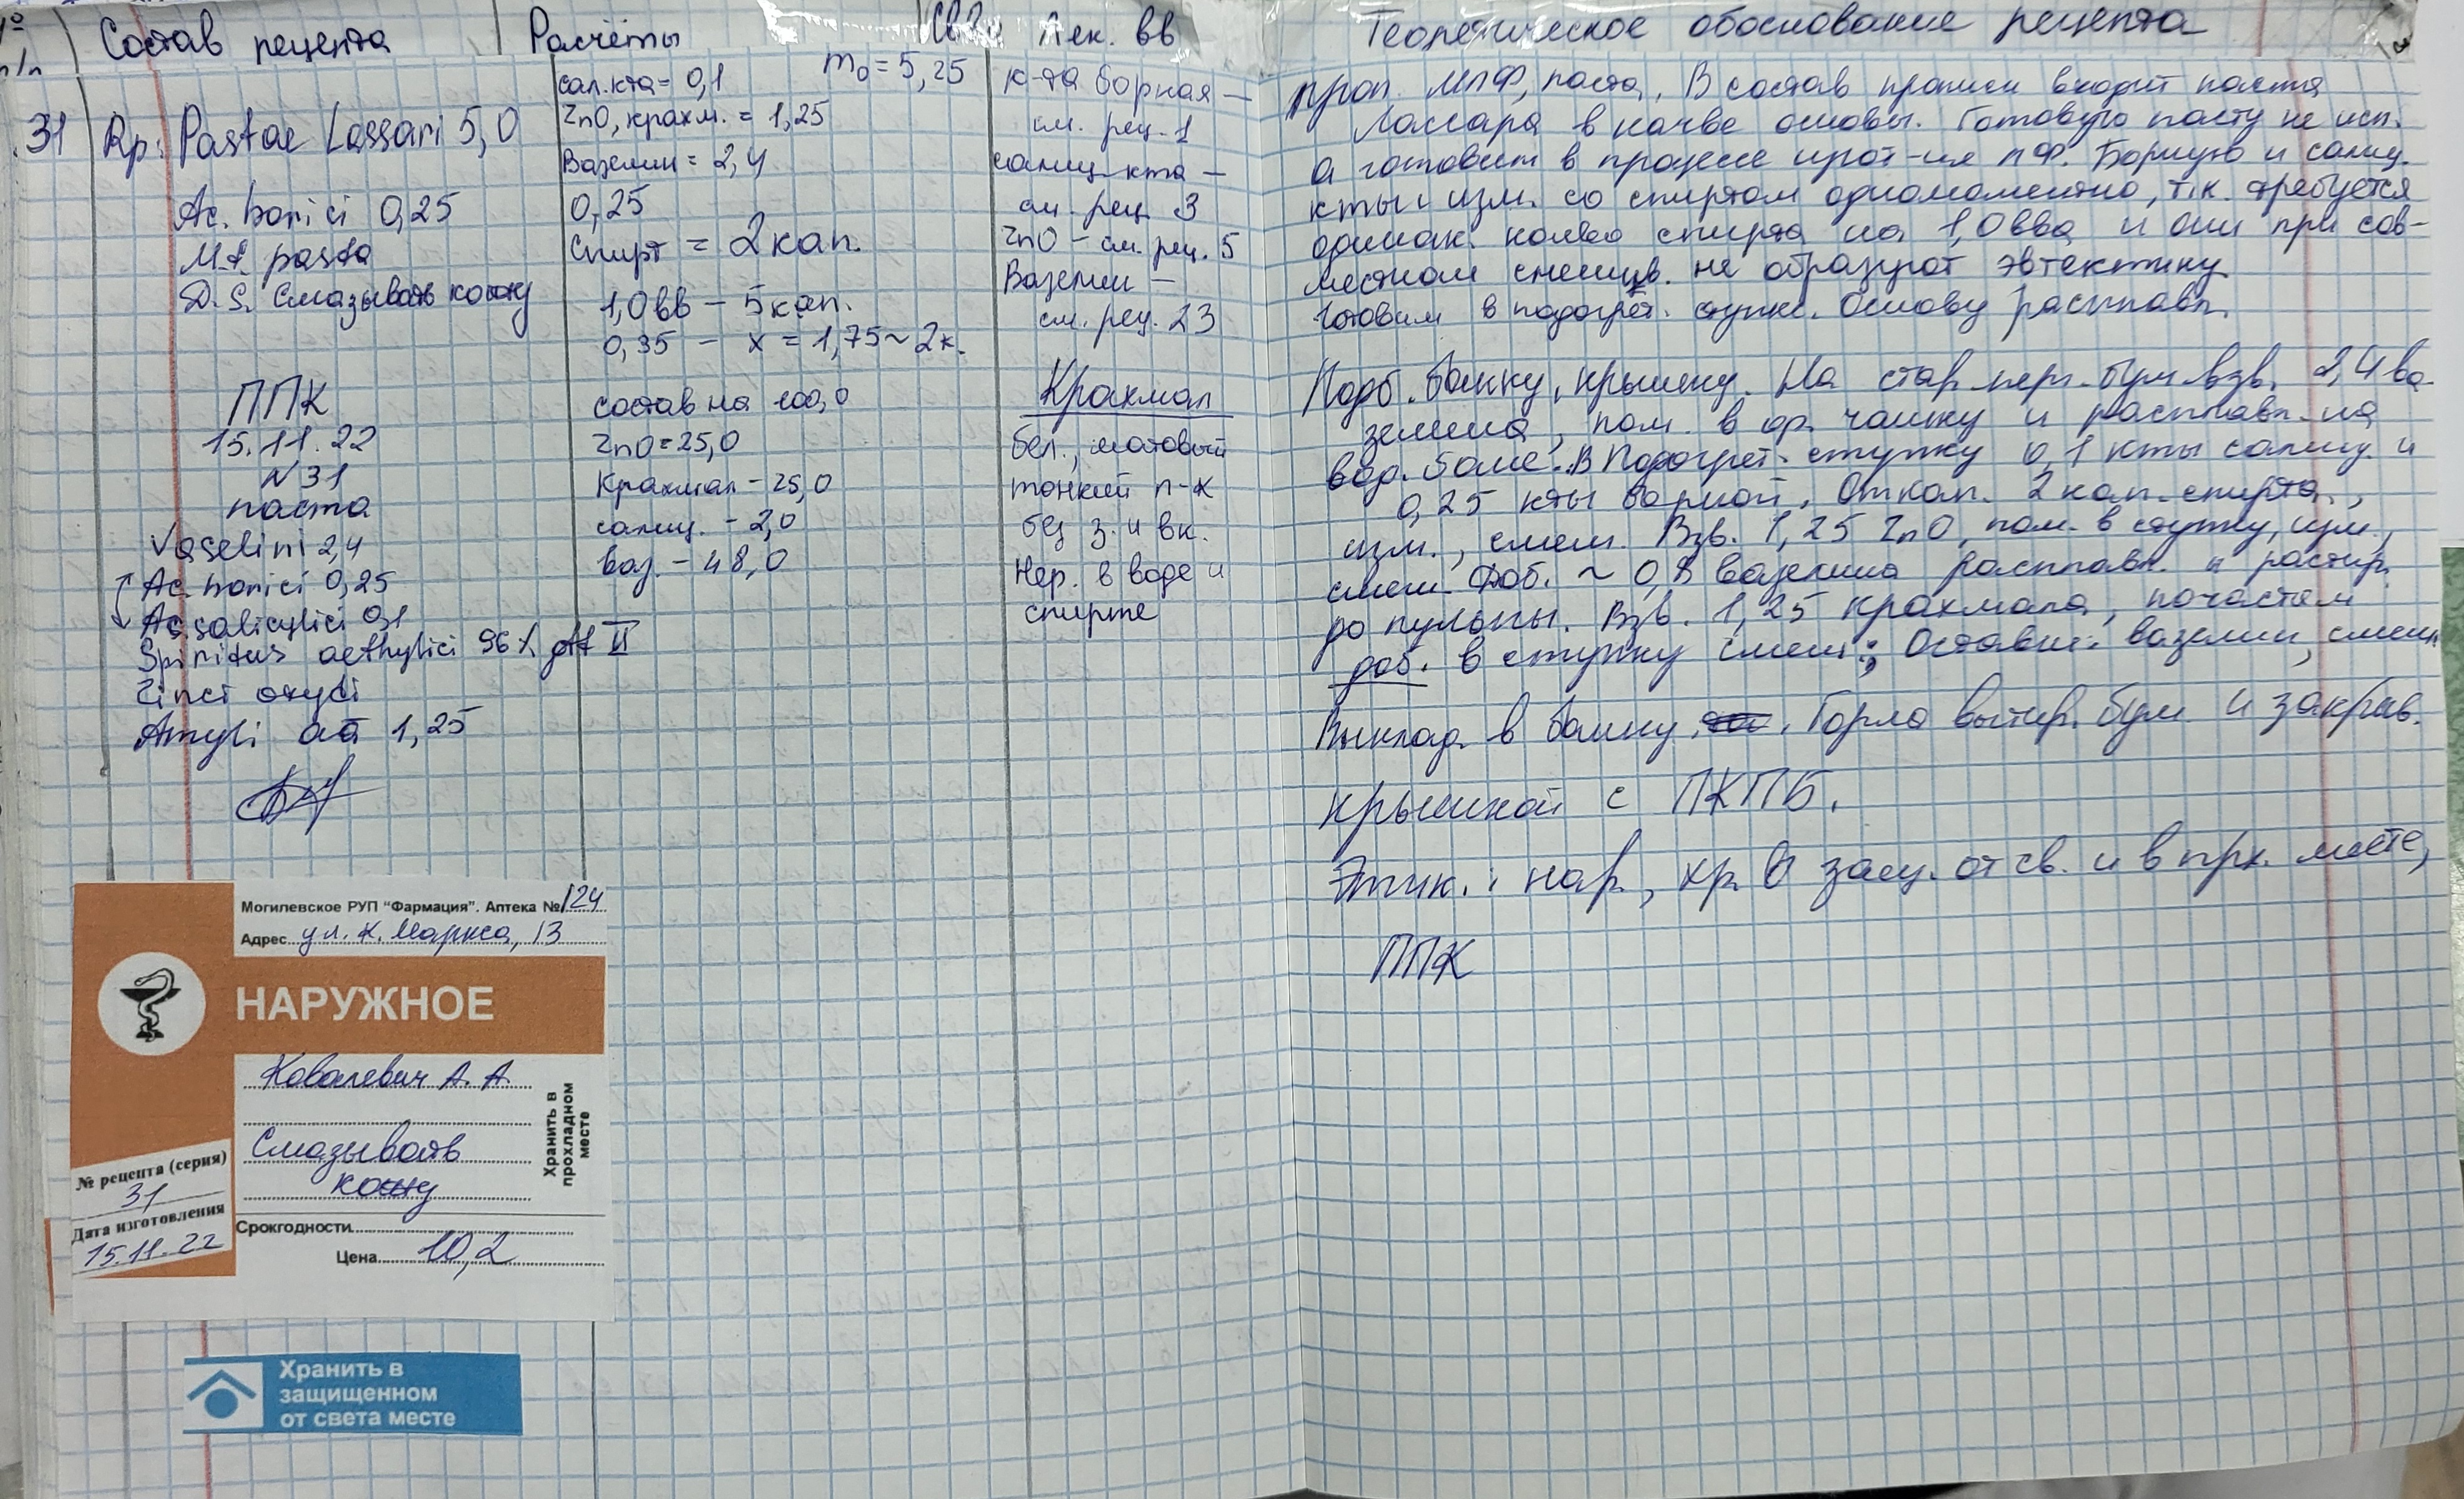 № п/п
Состав рецепта
Расчёты
Св-ва лек. вв
Теоретическое обоснование рецепта
31
Rp: Pastae Lassari 5,0
Ac. borici 0,25
M.f. pasta
D.S. Смазывать кожу
ППК
15.11.22
N31
паста
Vaselini 2,4
Ac. borici 0,25
Ac. salicylici 0,1
Spiritus aethylici 96% gtt II
Zinci oxydi
Amyli āā 1,25
m₀ = 5,25
сал. кта = 0,1
ZnO, крахм. = 1,25
Вазелин = 2,4
0,25
Спирт = 2 кап.
1,0 вв – 5 кап.
0,35 – x = 1,75 ~ 2 к.
состав на 100,0
ZnO = 25,0
Крахмал – 25,0
салиц. – 2,0
ваз. – 48,0
к-та борная –
см. рец. 1
салиц. кта –
см. рец. 3
ZnO – см. рец. 5
Вазелин –
см. рец. 23
Крахмал
бел., матовый
тонкий п-к
без з. и вк.
Нер. в воде и
спирте
проп. МЛФ, паста. В состав прописи входит паста
Лассара в качве основы. Готовую пасту не исп.
а готовят в процессе изгот-ия ЛФ. Борную и салиц.
кты изм. со спиртом одномоментно, т.к. требуется
одинак. колво спирта на 1,0 вва и они при сов-
местном смешив. не образуют эвтектику.
Готовим в подогрет. ступке. Основу расплавл.
Подб. банку, крышку. На стар. перг. бум взв. 2,4 ва-
зелина, пом. в ф. чашку и расплавл. на
вод. бане. В подогрет. ступку 0,1 кты салиц. и
0,25 кты борной. Откап. 2 кап. спирта,
изм., смеш. Взв. 1,25 ZnO, пом. в ступку, изм.,
смеш. Доб. ~ 0,8 вазелина расплавл. и растир.
до пульпы. Взв. 1,25 крахмала, по частям
доб. в ступку смеш.; Оставш. вазелин, смеш
Выклад. в банку. Горло вытир. бум. и закрыв.
крышкой с ПКПБ.
Этик.: нар, хр. в защ. от св. и в прх. месте,
ППК
Могилевское РУП "Фармация". Аптека № 124
Адрес ул. К. Маркса, 13
НАРУЖНОЕ
Ковалевич А. А.
Смазывать
кожу
Хранить в
прохладном
месте
№ рецепта (серия)
31
Дата изготовления
15.11.22
Срокгодности
Цена 10,2
Хранить в
защищенном
от света месте